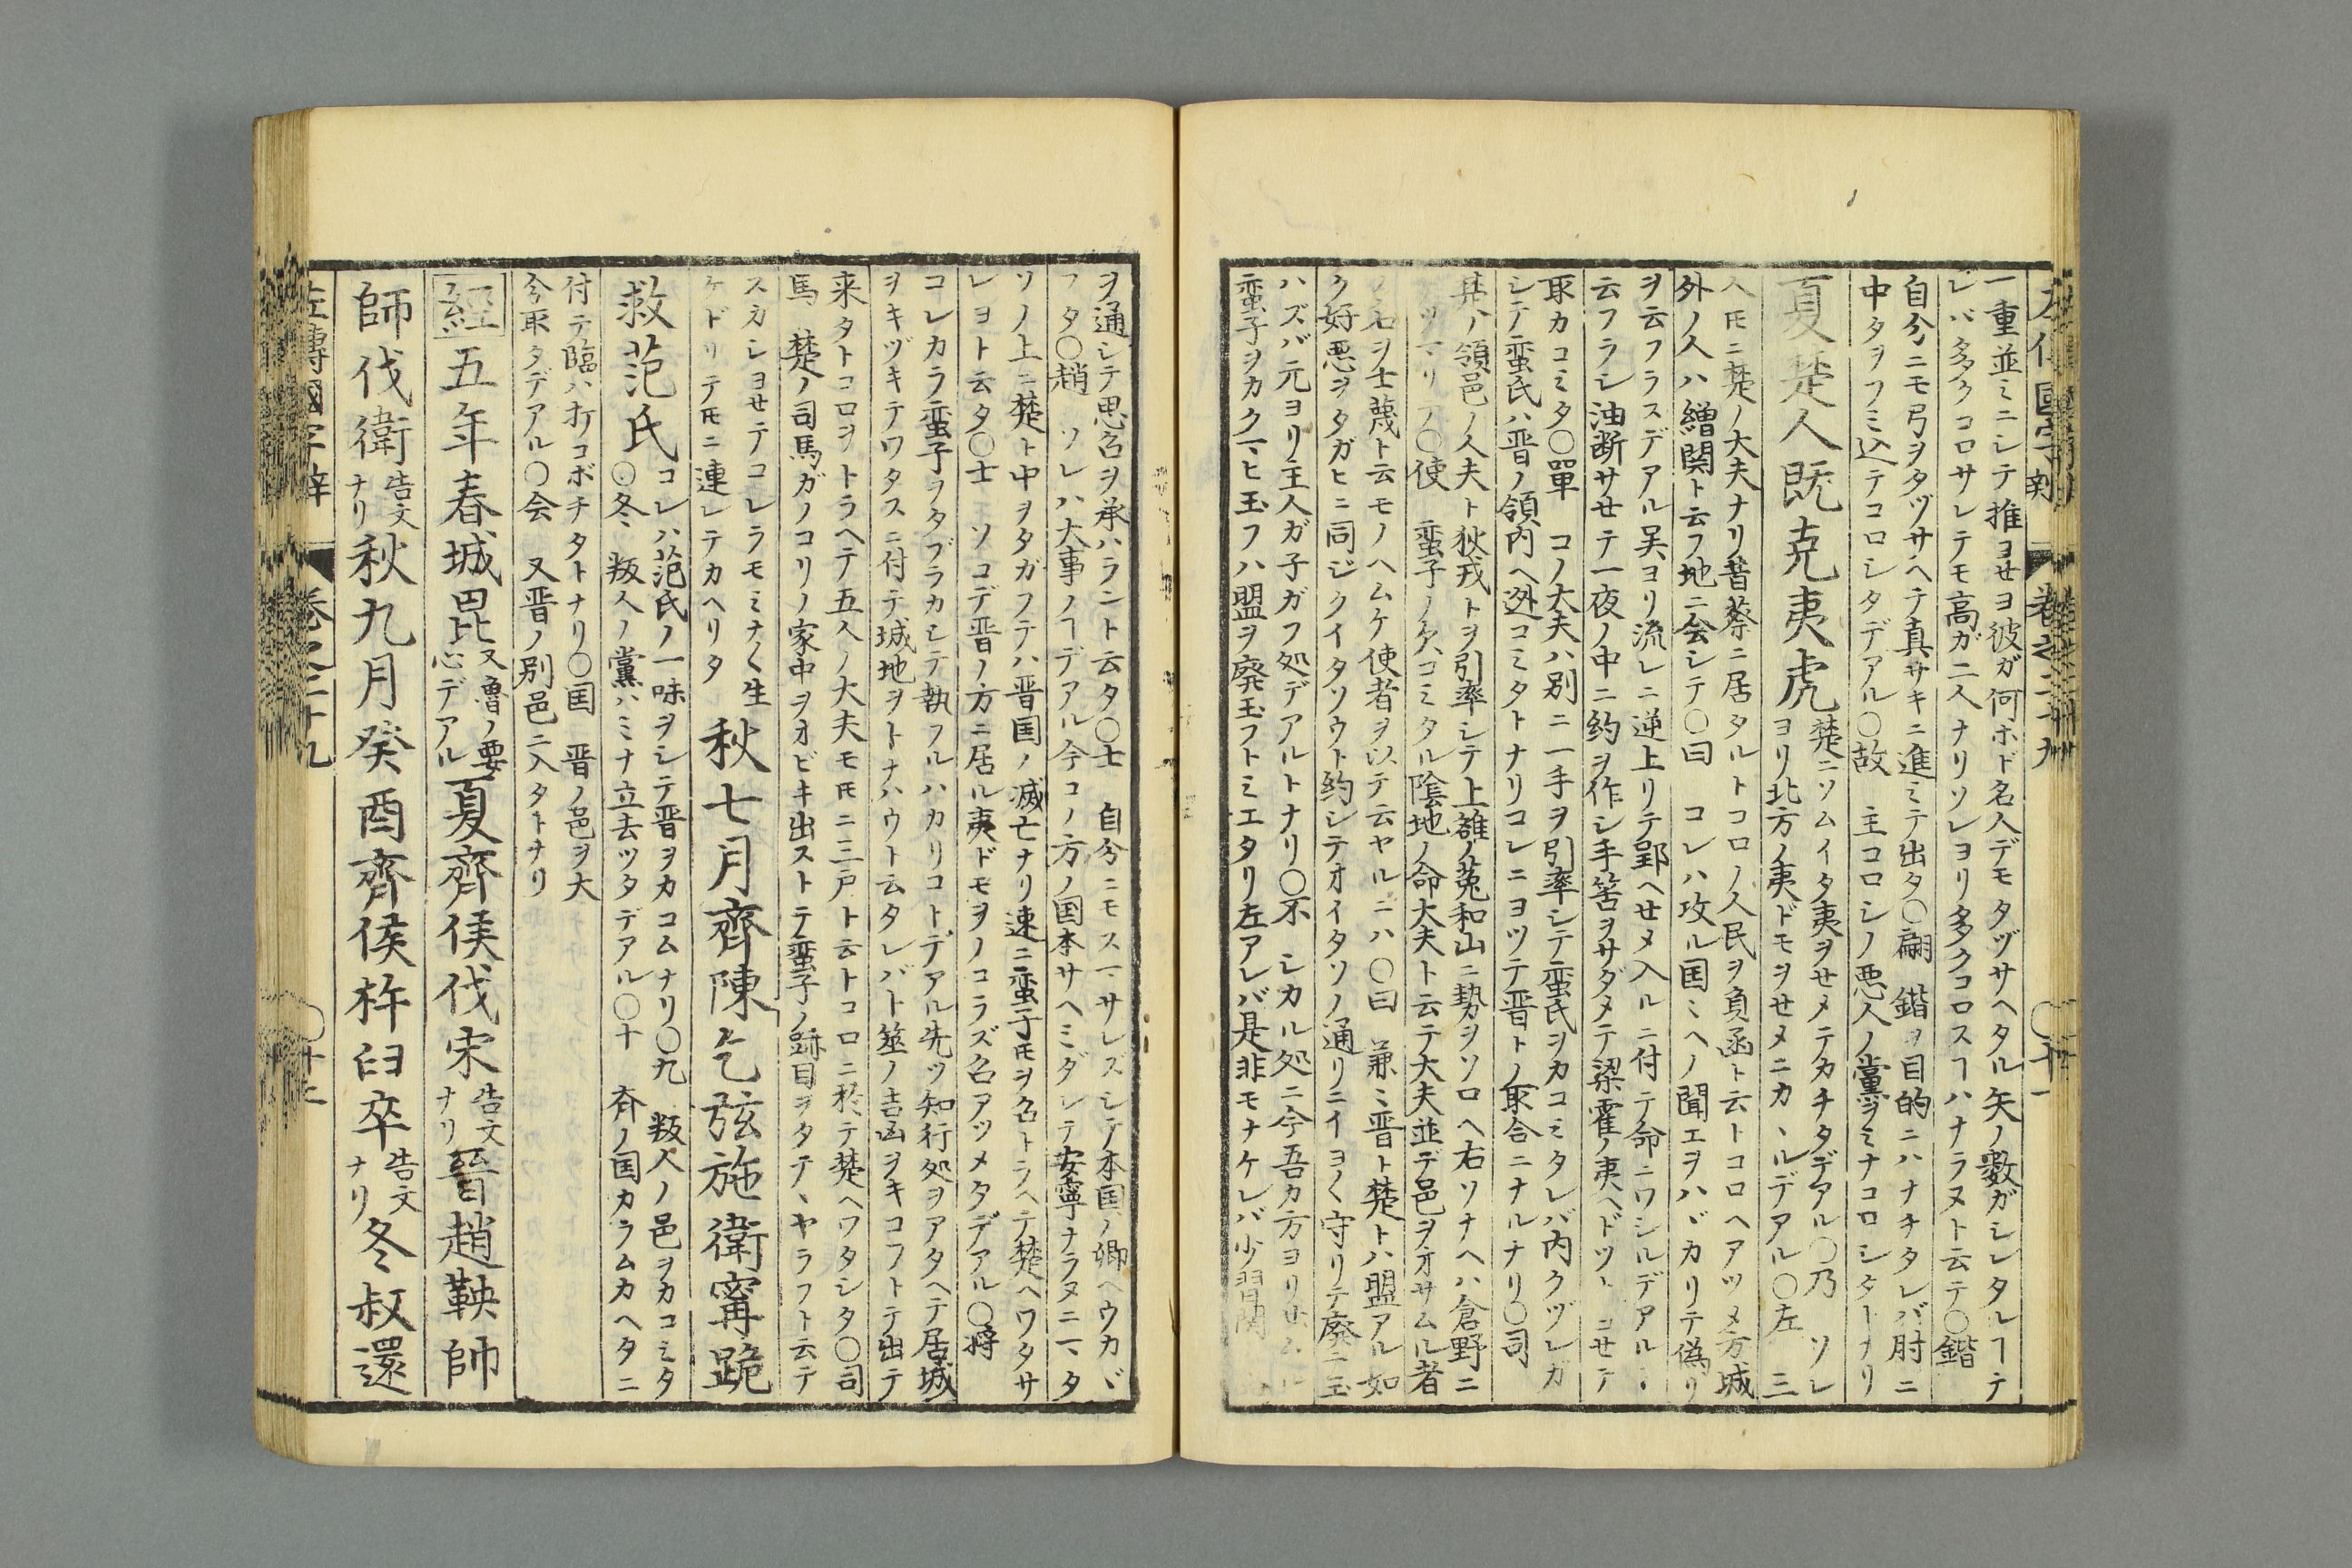 左傳國字辯 卷之二十九 〇十一
一重並ミニシテ推ヨせヨ彼ガ何ホド名人デモタヅサヘタル矢ノ數ガシレタルヿテ
レバ多クコロサレテモ高ガ二人ナリソレヨリ多クコロスヿハナラヌト云テ〇鍇
自分ニモ弓ヲタヅサヘテ真サキニ進ミテ出タ〇翩 鍇ヲ目的ニハナチタレバ肘ニ
中タヲフミ込テコロシタデアル〇故 主コロシノ悪人ノ黨ヲミナコロシタトナリ
夏楚人既克夷虎
楚ニソムイタ夷ヲせメテカチタデアル〇乃 ソレ
ヨリ北方ノ夷ドモヲせメニカヽルデアル〇左 三
人𪜈ニ楚ノ大夫ナリ昔蔡ニ居タルトコロノ人民ヲ負函ト云トコロヘアツメ方城
外ノ人ハ繒関ト云フ地ニ会シテ〇曰 コレハ攻ル国ミヘノ聞エヲハヾカリテ偽リ
ヲ云フラスデアル吴ヨリ流レニ逆上リテ郢ヘせメ入ルニ付テ命ニワシルデアルヽ
云フラシ油断サせテ一夜ノ中ニ約ヲ作シ手筈ヲサダメテ梁霍ノ夷ヘドツトヨせテ
取カコミタ〇單 コノ大夫ハ別ニ一手ヲ引率シテ蛮氏ヲカコミタレバ内クヅレガ
シテ蛮氏ハ晋ノ領内ヘ迯コミタトナリコレニヨツテ晋トノ取合ニナルナリ〇司
其ノ領邑ノ人夫ト狄戎トヲ引率シテ上雒ノ菟和山ニ勢ヲソロヘ右ソナヘハ倉野ニ
〇使 蛮子ノ欠コミタル陰地ノ命大夫ト云テ大夫並デ邑ヲオサムル者
名ヲ士蔑ト云モノヘムケ使者ヲ以テ云ヤルニハ〇曰 兼ミ晋ト楚トハ盟アル如
ク好悪ヲタガヒニ同ジクイタソウト約シテオイタソノ通リニイヨ〱守リテ廢玉
ハズバ元ヨリ主人ガ子ガフ処デアルトナリ〇不 シカル処ニ今吾カ方ヨリせムル
蛮子ヲカクヽヒ玉フハ盟ヲ廢玉フトミエタリ左アレバ是非モナケレバ少習関
ヲ通シテ思召ヲ承ハラント云タ〇士 自分ニモスマサレズシテ本国ノ卿ヘウカヾ
フタ〇趙 ソレハ大事ノヿデアル今コノ方ノ国本サヘミダレテ安寧ナラヌニマタ
ソノ上ニ楚ト中ヲタガフテハ晋国ノ滅亡ナリ速ニ蛮子𪜈ヲ召トラヘテ楚ヘワタサ
レヨト云タ〇士 ソコデ晋ノ方ニ居ル夷ドモヲノコラズ召アツメタデアル〇將
コレカラ蛮子ヲタブラカシテ執フルハカリコトデアル先ツ知行処ヲアタヘテ居城
ヲキヅキテワタスニ付テ城地ヲトナハウト云タレバト筮ノ吉凶ヲキコフトテ出テ
来タトコロヲトラヘテ五人ノ大夫モ𪜈ニ三戸ト云トコロニ於テ楚ヘワタシタ〇司
馬 楚ノ司馬ガノコリノ家中ヲオビキ出ストテ蛮子ノ跡目ヲタテヽヤラフト云テ
スカシヨせテコレラモミナ〱生
ケドリテ𪜈ニ連レテカヘリタ
秋七月齊陳乞弦施衛甯跪
救范氏
コレハ范氏ノ一味ヲシテ晋ヲカコムナリ〇九 叛人ノ邑ヲカコミタ
〇冬 叛人ノ黨ハミナ立去ツタデアル〇十 斉ノ国カラムカヘタニ
付テ臨ハ打コボチタトナリ〇国 晋ノ邑ヲ大
今取タデアル〇会 又晋ノ別邑ニ入タトナリ
經五年春城毘
又魯ノ要
心デアル
夏齊侯伐宋
告文
ナリ
晉趙鞅帥
師伐衛
告文
ナリ
秋九月癸酉齊侯杵臼卒
告文
ナリ
冬叔還
左傳國字辯 卷之二十九 〇十二